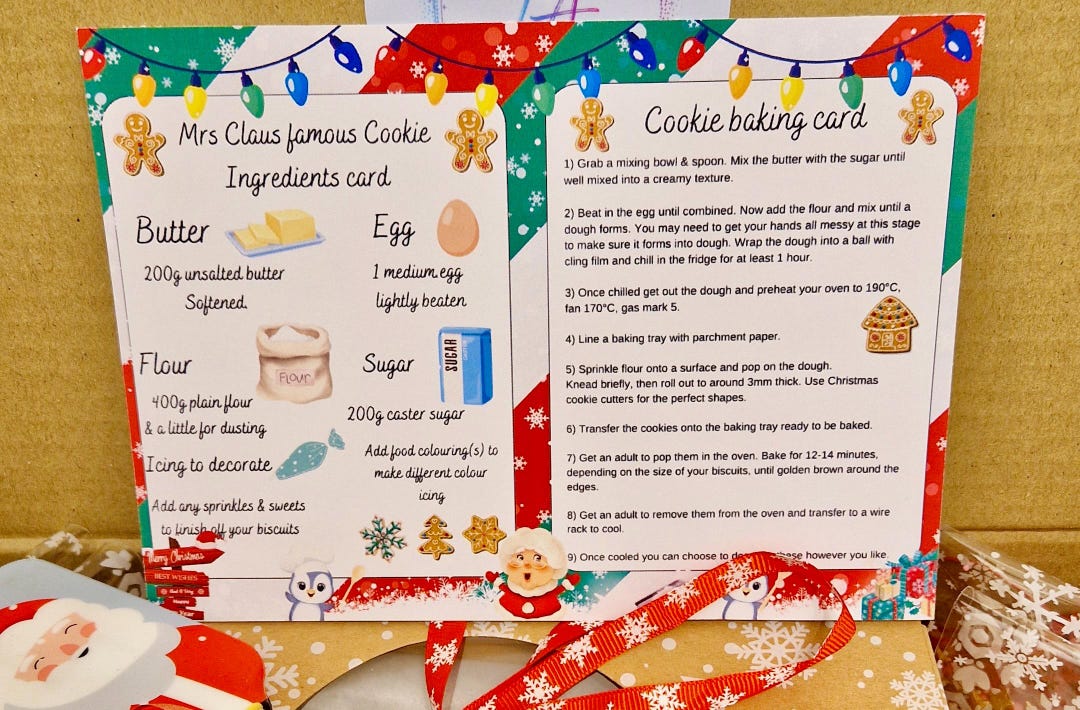 Mrs Claus famous Cookie
Ingredients card
Butter
200g unsalted butter
Softened.
Egg
1 medium egg
lightly beaten
Flour
FLOUR
400g plain flour
& a little for dusting
Sugar
SUGAR
200g caster sugar
Icing to decorate
Add any sprinkles & sweets
to finish off your biscuits
Add food colouring(s) to
make different colour
icing
Merry Christmas
BEST WISHES
Cookie baking card
1) Grab a mixing bowl & spoon. Mix the butter with the sugar until
well mixed into a creamy texture.
2) Beat in the egg until combined. Now add the flour and mix until a
dough forms. You may need to get your hands all messy at this stage
to make sure it forms into dough. Wrap the dough into a ball with
cling film and chill in the fridge for at least 1 hour.
3) Once chilled get out the dough and preheat your oven to 190°C,
fan 170°C, gas mark 5.
4) Line a baking tray with parchment paper.
5) Sprinkle flour onto a surface and pop on the dough.
Knead briefly, then roll out to around 3mm thick. Use Christmas
cookie cutters for the perfect shapes.
6) Transfer the cookies onto the baking tray ready to be baked.
7) Get an adult to pop them in the oven. Bake for 12-14 minutes,
depending on the size of your biscuits, until golden brown around the
edges.
8) Get an adult to remove them from the oven and transfer to a wire
rack to cool.
9) Once cooled you can choose to however you like.